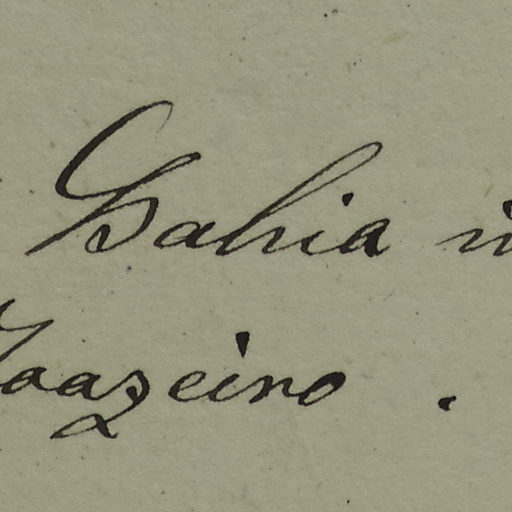 Bahia in
Joazeiro.